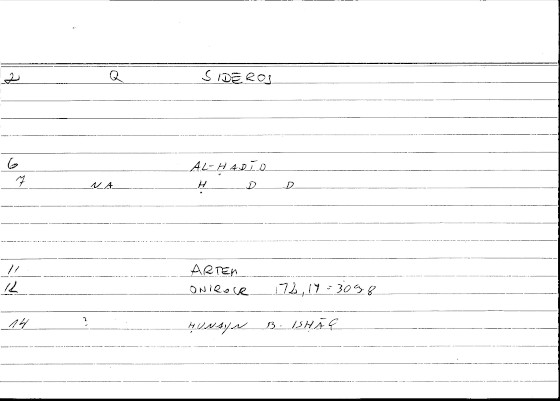 2 Q SIDEROS
6 AL-ḤADĪD
7 NA Ḥ D D
11 ARTEM
12 ONIROCR 172,17 = 309 8
14 ? ḤUNAYN B. ISHĀQ